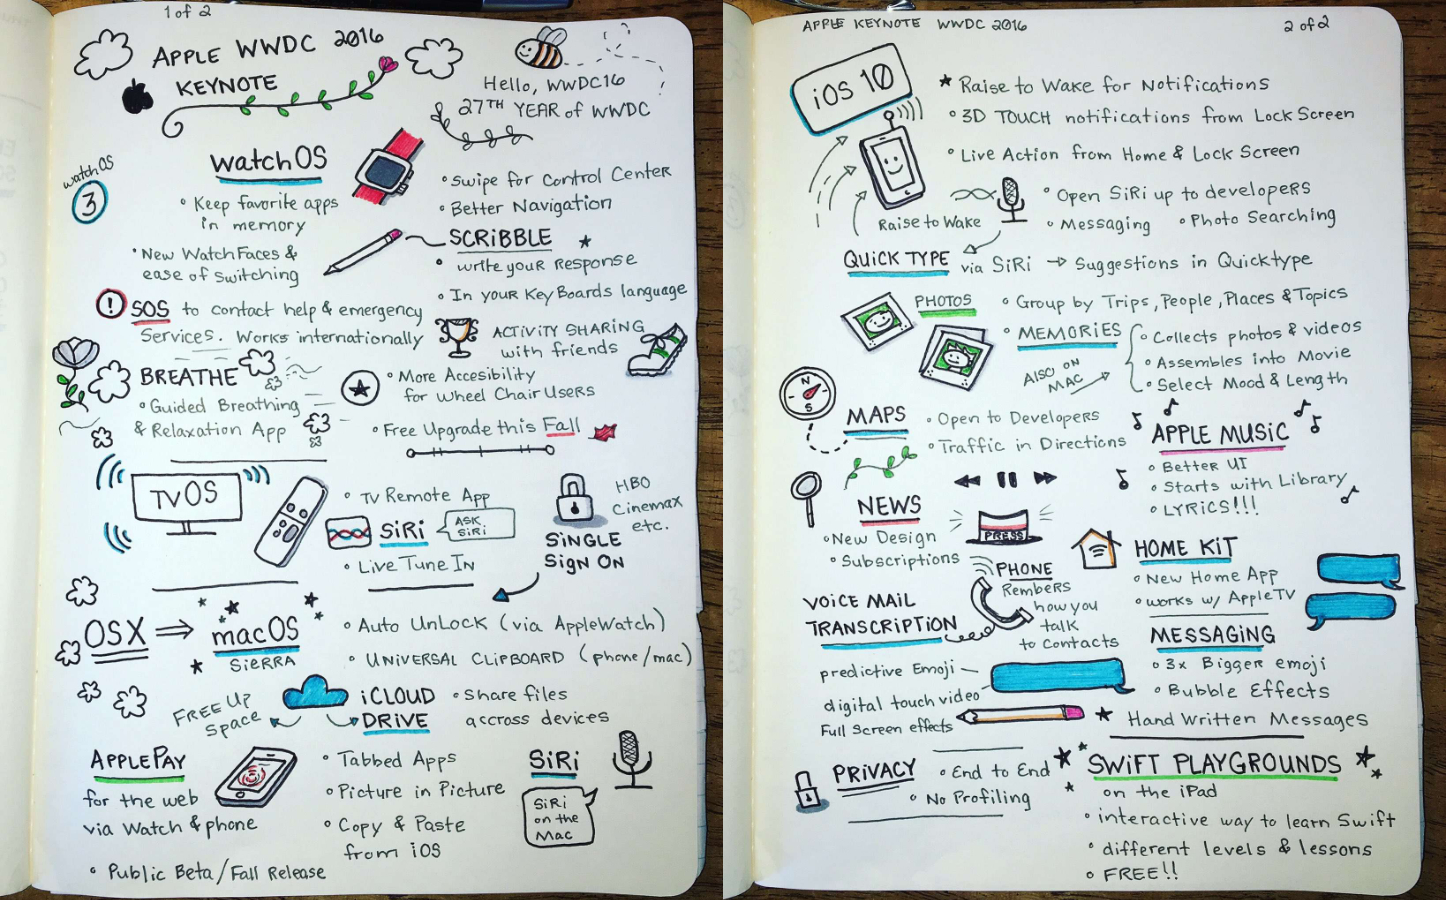 1 of 2
APPLE WWDC 2016
KEYNOTE
Hello, WWDC16
27TH YEAR of WWDC
watchOS
3
watchOS
• Keep favorite apps
in memory
• New WatchFaces &
ease of switching
• Swipe for Control Center
• Better Navigation
SCRiBBLE
• write your Response
• In your KeyBoards language
! SOS to contact help & emergency
Services. Works internationally
ACTiViTY SHARiNG
with friends
BREATHE
• Guided Breathing
& Relaxation App
• More Accesibility
for Wheel Chair Users
• Free Upgrade this Fall
TV OS
• TV Remote App
SiRi
ASK
SiRi
• Live Tune In
HBO
Cinemax
etc.
SiNGLE
Sign ON
OSX ⇒ macOS
SiERRA
• Auto UnLOCK (via AppleWatch)
• UNiVERSAL CLiPBOARD (phone/mac)
FREE UP
Space
iCLOUD
DRiVE
• Share files
accross devices
APPLEPAY
for the web
via Watch & phone
• Tabbed Apps
• Picture in Picture
• Copy & Paste
from iOS
SiRi
SiRi
on the
Mac
• Public Beta/Fall Release
APPLE KEYNOTE WWDC 2016
2 of 2
iOS 10
Raise to Wake
★ Raise to Wake for Notifications
• 3D TOUCH notifications from Lock Screen
• Live Action from Home & Lock Screen
• Open SiRi up to developers
• Messaging • Photo Searching
QUiCK TYPE via SiRi → Suggestions in Quicktype
PHOTOS
• Group by Trips, People, Places & Topics
• MEMORiES
• Collects photos & videos
• Assembles into Movie
• Select Mood & Length
ALSO ON
MAC
N
S
MAPS
• Open to Developers
• Traffic in Directions
APPLE MUSiC
• Better UI
• Starts with Library
• LYRiCS!!!
NEWS
• New Design
• Subscriptions
PRESS
HOME KiT
• New Home App
• works w/ AppleTV
PHONE
Rembers
how you
talk
to contacts
VOiCE MAiL
TRANSCRiPTiON
MESSAGiNG
• 3x Bigger emoji
• Bubble Effects
★ Hand Written Messages
predictive Emoji
digital touch video
Full Screen effects
PRiVACY
• End to End
• No Profiling
SWiFT PLAYGROUNDS
on the iPad
• interactive way to learn Swift
• different levels & lessons
• FREE!!